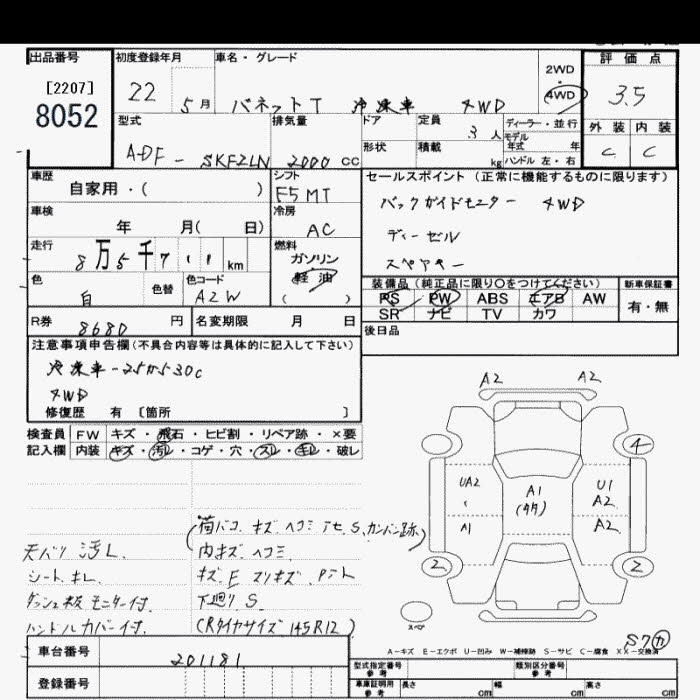 出品番号
[2207]
8052
初度登録年月
22 5月
車名・グレード
バネットT 冷凍車 4WD
2WD
・
4WD
評価点
3.5
外装 内装
C C
型式
ADF - SKF2LN
排気量
2000 cc
ドア
形状
定員
3人
積載
kg
ディーラー・並行
モデル
年式 年
ハンドル 左・右
車歴
自家用・( )
シフト
F5MT
車検
年 月( 日)
冷房
AC
走行
8万5千7 km
燃料
ガソリン
軽油
( )
色
白
色替
色コード
A2W
R券
8680円
名変期限 月 日
セールスポイント(正常に機能するものに限ります)
バックガイドモニター 4WD
ディーゼル
スペアキー
装備品(純正品に限り○をつけてください)
PS PW ABS エアB AW
SR ナビ TV カワ
新車保証書
有・無
後日品
注意事項申告欄(不具合内容等は具体的に記入して下さい)
冷凍車-25から530c
4WD
修復歴 有 [箇所 ]
検査員
記入欄
FW キズ・飛石・ヒビ割・リペア跡・×要
内装 キズ・汚レ・コゲ・穴・スレ・キレ・破レ
(荷バコ キズ ヘコミ アセ S、カンバン跡)
内キズ ヘコミ
天バリ 汚レ
シート キレ
キズ E スリキズ
ダッシュ板 モニター付
下廻り S
ハンドルカバー付
(Rタイヤサイズ 145R12)
A2 A2
4
UA2
A1
A1
U1
A2
A2
2 2
スペア
A-キズ E-エクボ U-凹み W-補修跡 S-サビ C-腐食 XX-交換済
車台番号
201181
登録番号
型式指定番号
参考
類別区分番号
参考
車庫証明用
参考
長さ cm 幅 cm 高さ cm